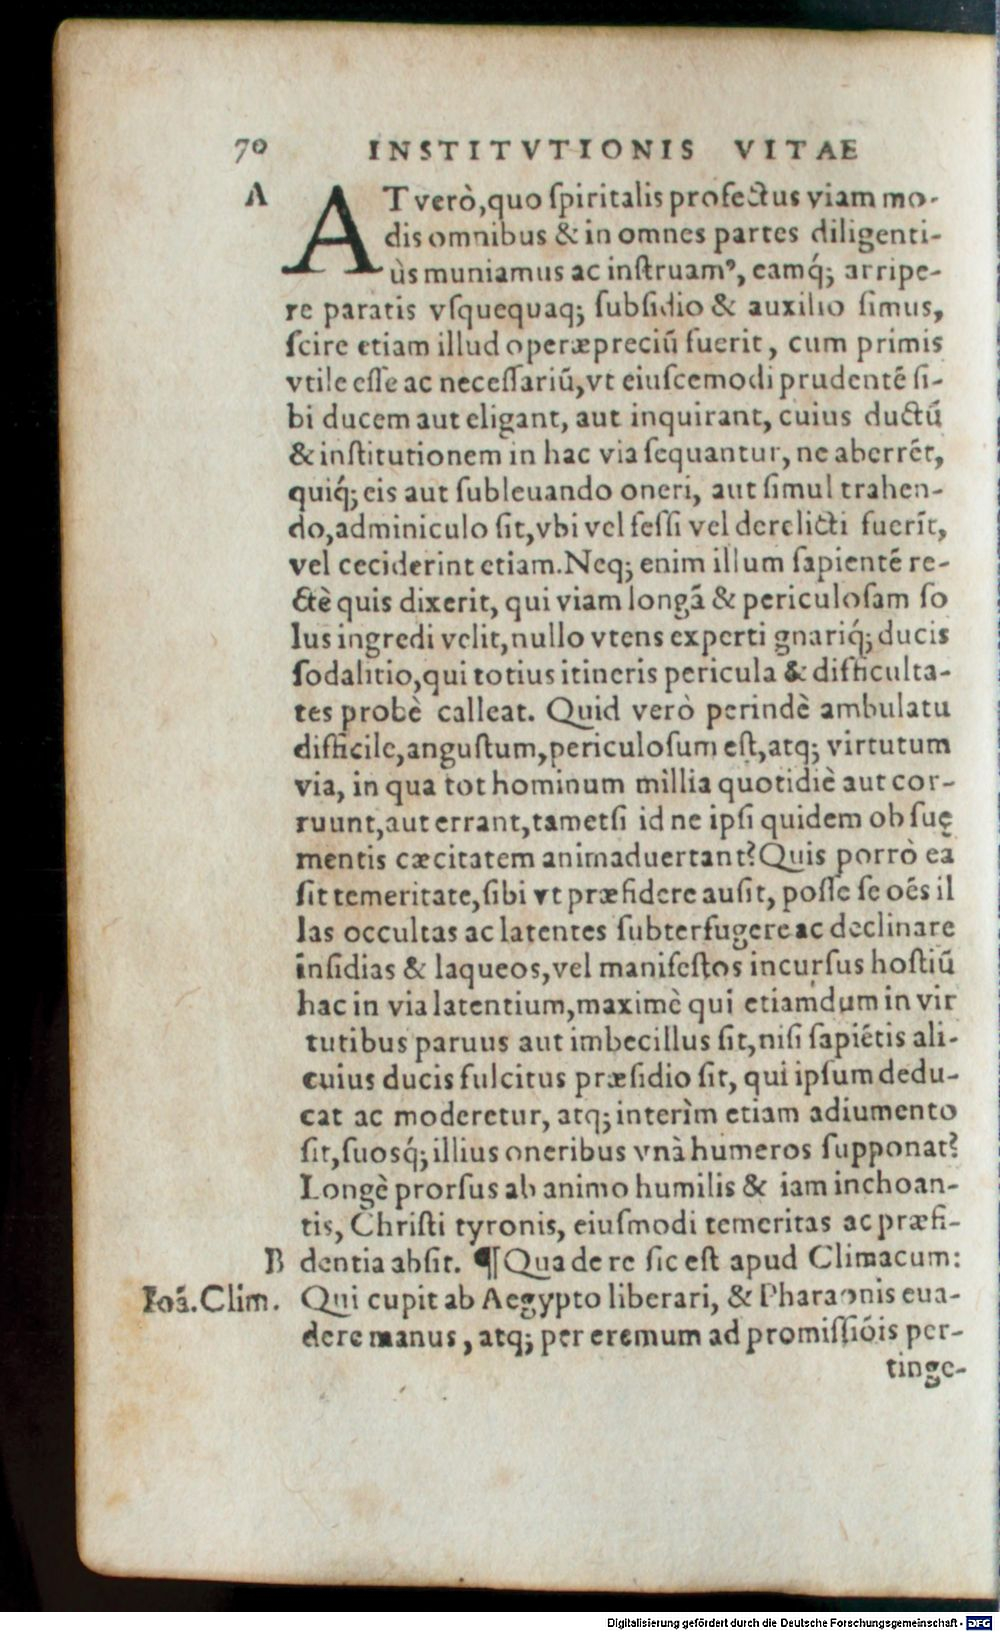 70 INSTITVTIONIS VITAE
A AT verò, quo ſpiritalis profectus viam mo-
dis omnibus & in omnes partes diligenti-
ùs muniamus ac inſtruamꝰ, eamq́; arripe-
re paratis vſquequaq; ſubſidio & auxilio ſimus,
ſcire etiam illud operæpreciũ fuerit, cum primis
vtile eſſe ac neceſſariũ, vt eiuſcemodi prudentẽ ſi-
bi ducem aut eligant, aut inquirant, cuius ductũ
& inſtitutionem in hac via ſequantur, ne aberrẽt,
quiq́; eis aut ſubleuando oneri, aut ſimul trahen-
do, adminiculo ſit, vbi vel feſſi vel derelicti fuerĩt,
vel ceciderint etiam. Neq; enim illum ſapientẽ re-
ctè quis dixerit, qui viam longã & periculoſam ſo
lus ingredi velit, nullo vtens experti gnariq́; ducis
ſodalitio, qui totius itineris pericula & difficulta-
tes probè calleat. Quid verò perindè ambulatu
difficile, anguſtum, periculoſum eſt, atq; virtutum
via, in qua tot hominum millia quotidiè aut cor-
ruunt, aut errant, tametſi id ne ipſi quidem ob ſuę
mentis cæcitatem animaduertant? Quis porrò eã
ſit temeritate, ſibi vt præfidere auſit, poſſe ſe oẽs il
las occultas ac latentes ſubterfugere ac declinare
inſidias & laqueos, vel manifeſtos incurſus hoſtiũ
hac in via latentium, maximè qui etiamdum in vir
tutibus paruus aut imbecillus ſit, niſi ſapiẽtis ali-
cuius ducis fulcitus præſidio ſit, qui ipſum dedu-
cat ac moderetur, atq; interìm etiam adiumento
ſit, ſuosq́; illius oneribus vnà humeros ſupponat?
Longè prorſus ab animo humilis & iam inchoan-
tis, Chriſti tyronis, eiuſmodi temeritas ac præfi-
B dentia abſit. ¶ Qua de re ſic eſt apud Climacum:
Ioã. Clim. Qui cupit ab Aegypto liberari, & Pharaonis eua-
dere manus, atq; per eremum ad promiſſiõis per-
tinge-
Digitalisierung gefördert durch die Deutsche Forschungsgemeinschaft - DFG